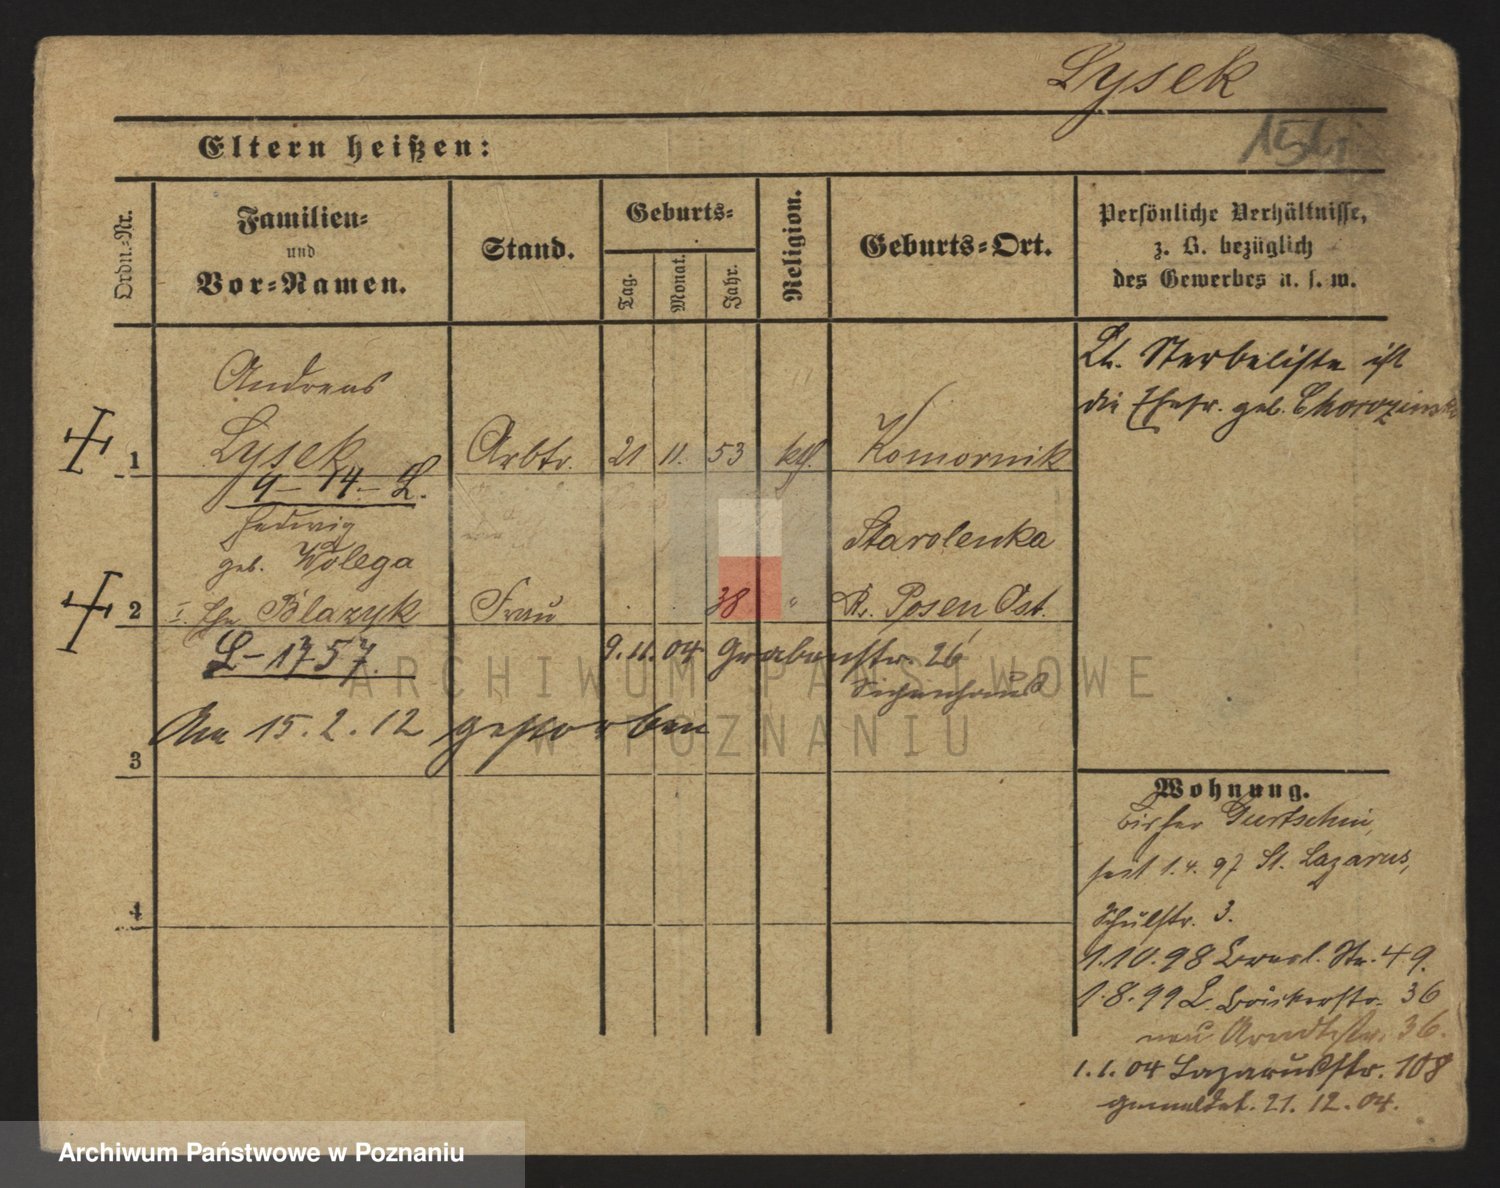 Lysek
154
Eltern heißen:
Ordn.-Nr.
Familien-
und
Vor-Namen.
Stand.
Geburts-
Tag.
Monat.
Jahr.
Religion.
Geburts-Ort.
Persönliche Verhältnisse,
z. B. bezüglich
des Gewerbes u. s. w.
Andreas
1 Lysek Arbtr. 21 11. 53 kth. Komornik
9 - 14 - L.
Hedwig
geb. Wolega
2 I. Ehe Blazyk Frau 38 " Starolenka
Kr. Posen Ost.
L - 1757.
9.11.04 Grabenstr. 26
Siechenhaus
Am 15.2.12 gestorben
3
4
Lt. Sterbeliste ist
die Ehefr. geb. Chorozinska
Wohnung.
bisher Gurtschin,
seit 1.4.97 St. Lazarus,
Schulstr. 3.
1.10.98 Bresl. Str. 49.
1.8.99 L. Bäckerstr. 36
neu Arndtstr. 36.
1.1.04 Lazarusstr. 108
gemeldet. 21.12.04.
ARCHIWUM PAŃSTWOWE
W POZNANIU
Archiwum Państwowe w Poznaniu